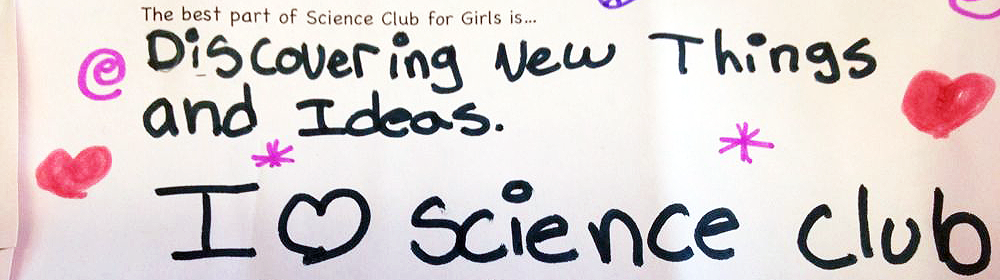 The best part of Science Club for Girls is...
Discovering New Things
and Ideas.
I ♡ science club